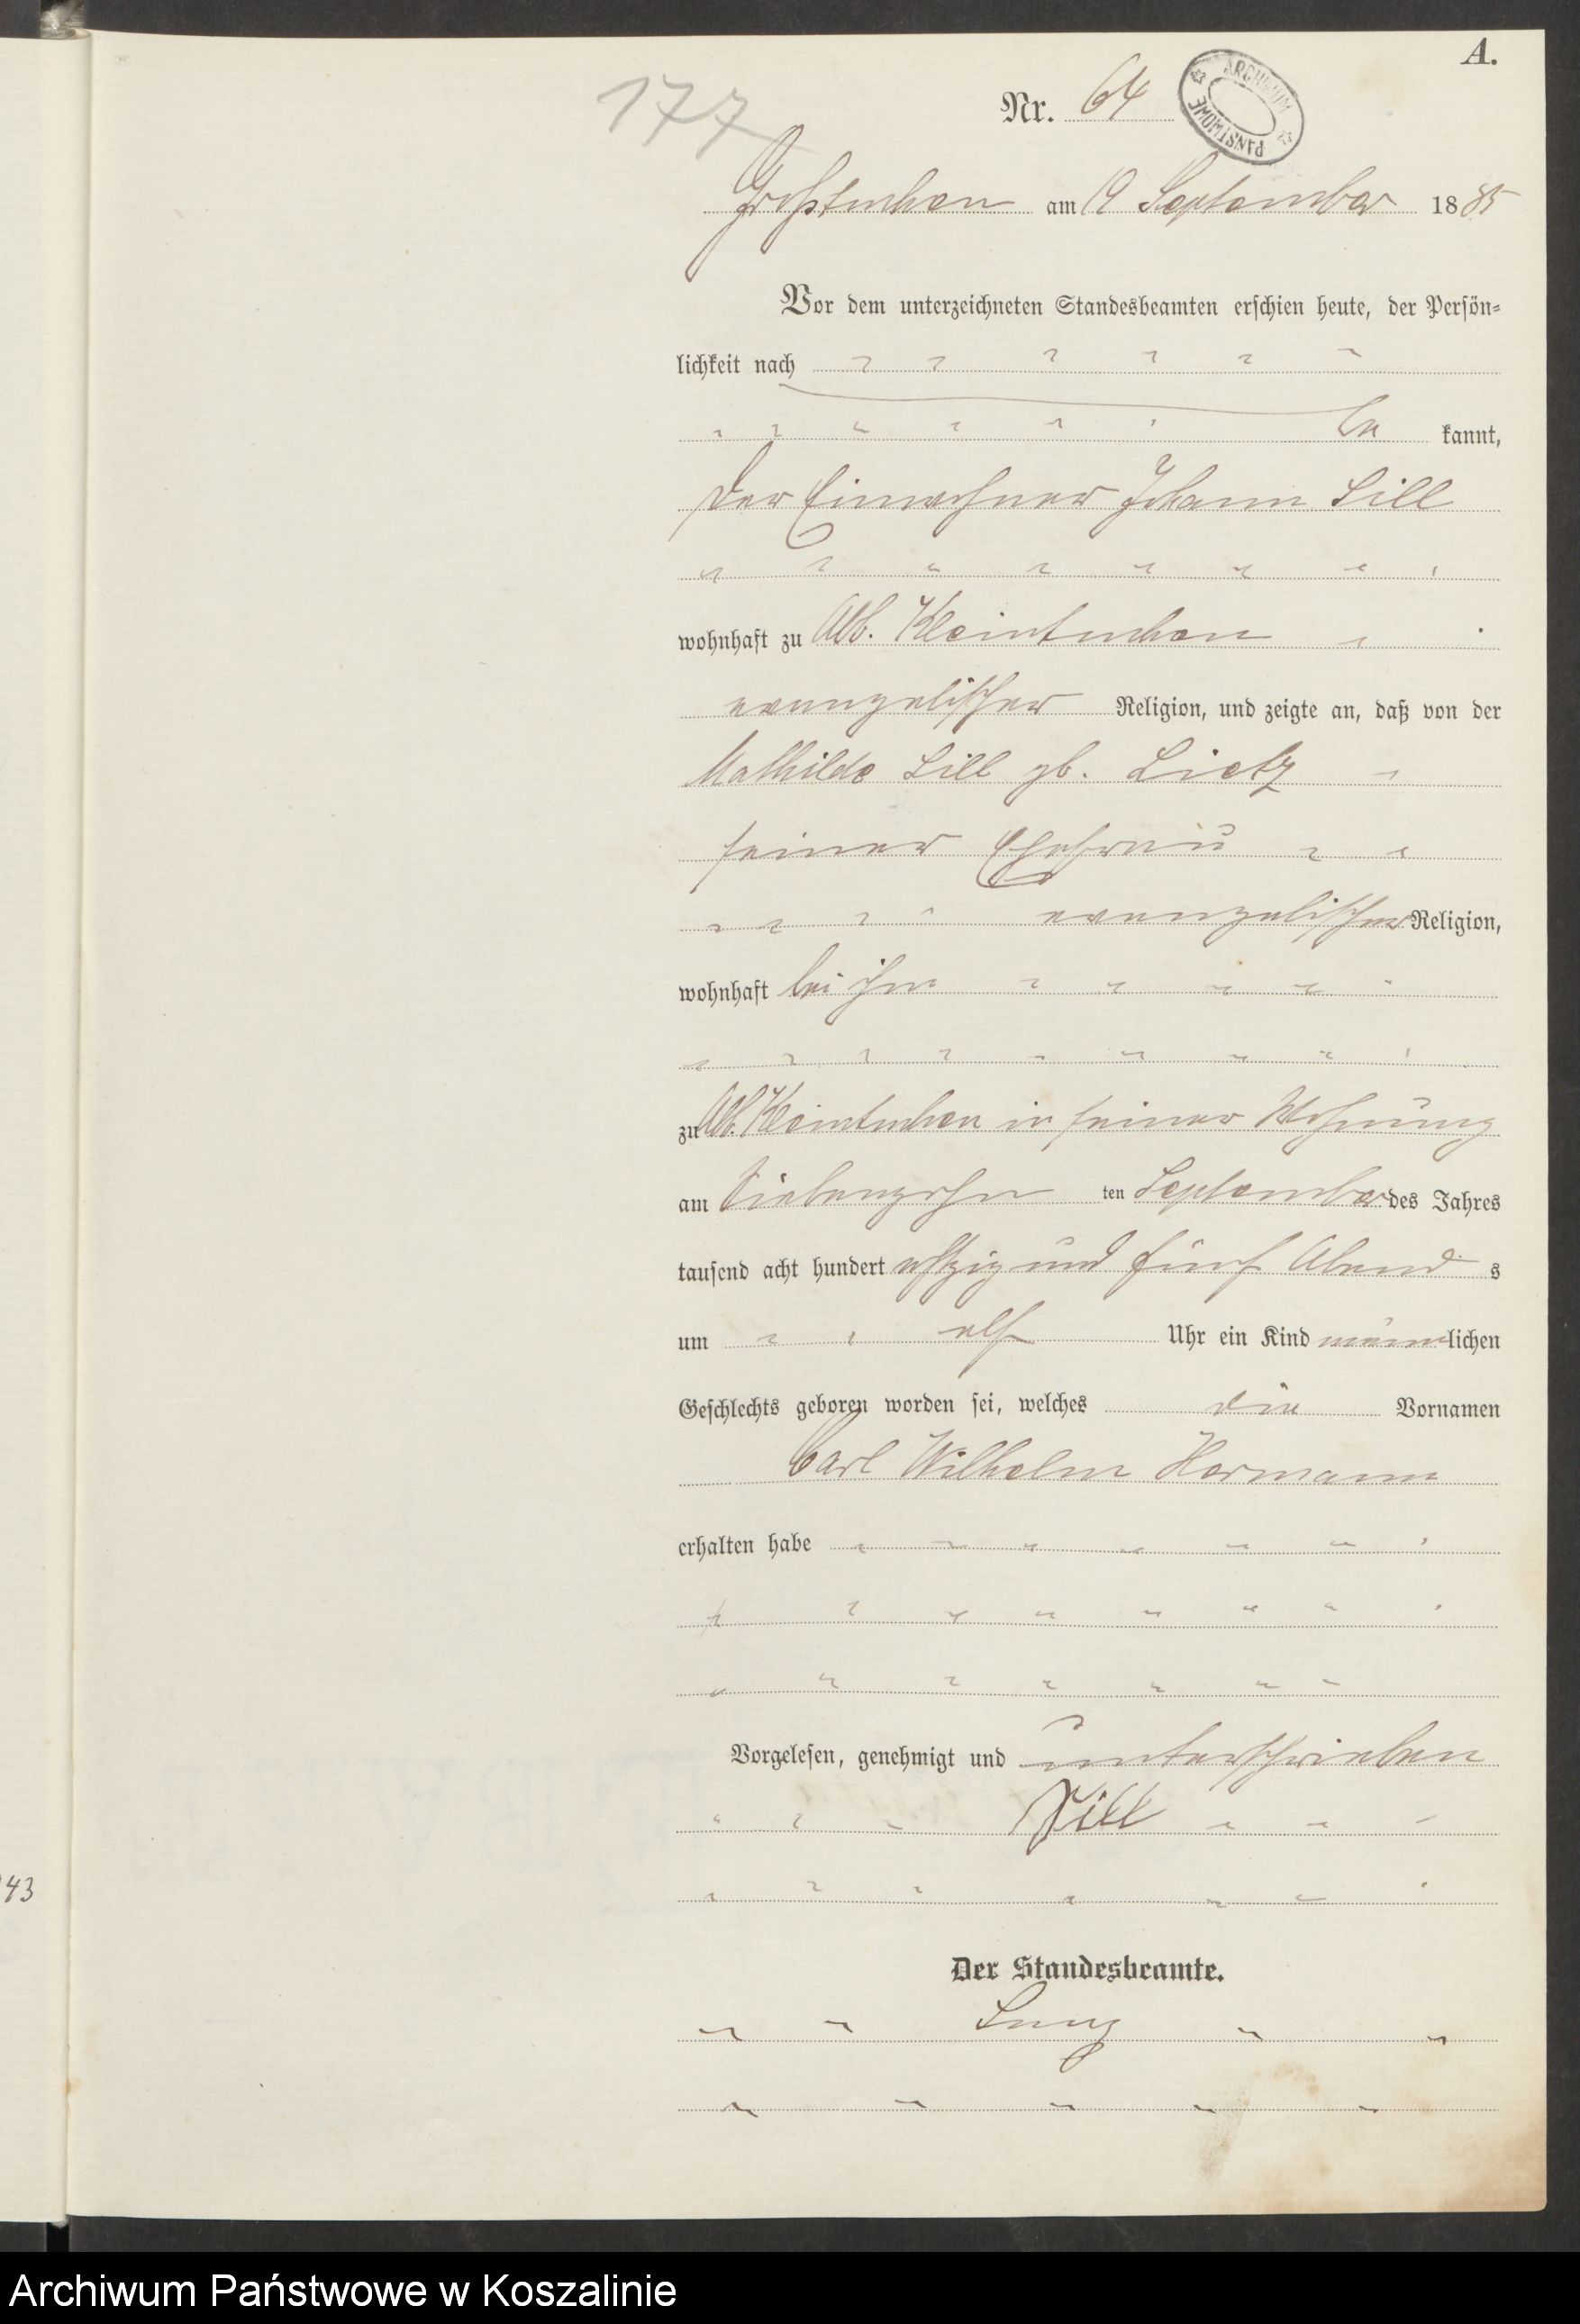 A.
177
Nr. 64
ARCHIWUM PAŃSTWOWE
Großtuchen am 19 September 1885
Vor dem unterzeichneten Standesbeamten erschien heute, der Persön-
lichkeit nach
be kannt,
der Einwohner Johann Sill
wohnhaft zu Abb. Kleintuchen
evangelischer Religion, und zeigte an, daß von der
Mathilde Sill gb. Lietz
seiner Ehefrau
evangelischer Religion,
wohnhaft bei ihm
zu Abb. Kleintuchen in seiner Wohnung
am Siebenzehn ten September des Jahres
tausend acht hundert achtzig und fünf Abend s
um elf Uhr ein Kind männlichen
Geschlechts geboren worden sei, welches die Vornamen
Carl Wilhelm Hermann
erhalten habe
Vorgelesen, genehmigt und unterschrieben
Sill
43
Der Standesbeamte.
Archiwum Państwowe w Koszalinie